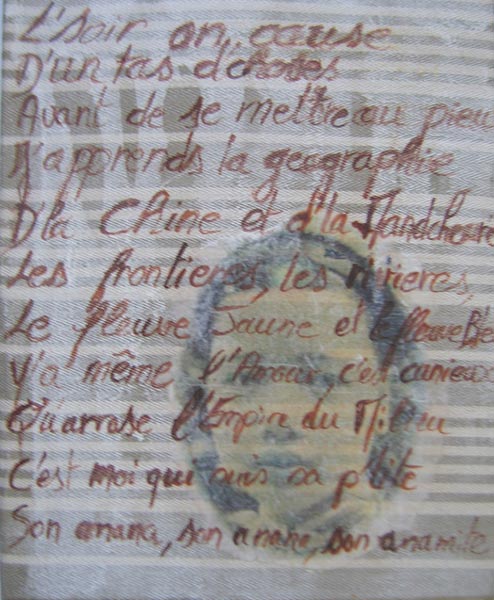 L'soir on cause
D'un tas d'choses
Avant de se mettre au pieu
J'apprends la geographie
D'la Chine et d'la Mandchourie
Les frontieres, les rivieres,
Le fleuve Jaune et le fleuve Ble
Y'a même l'Amour, c'est curieux
Qu'arrose l'Empire du Milieu
C'est moi qui suis sa p'tite
Son anana, son anana, son anamite